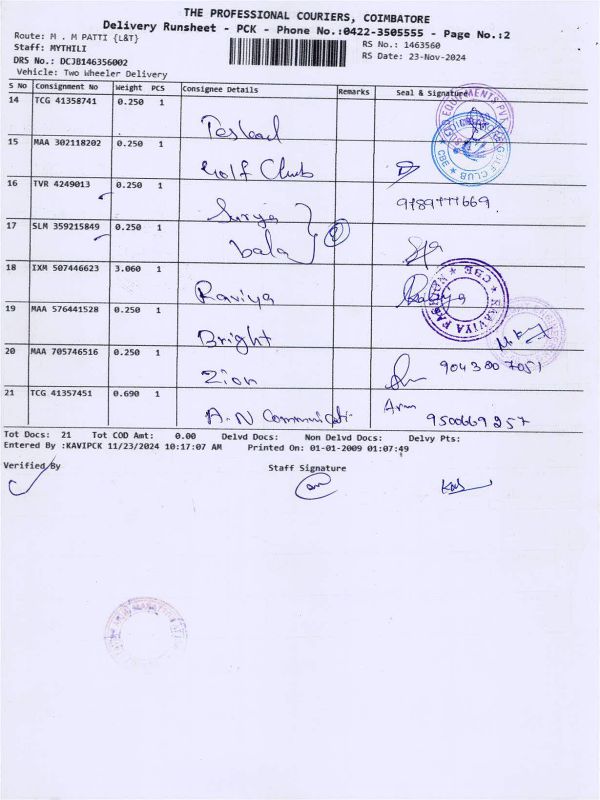 THE PROFESSIONAL COURIERS, COIMBATORE
Delivery Runsheet - PCK - Phone No.:0422-3505555 - Page No.:2
Route: M . M PATTI {L&T}
RS No.: 1463560
Staff: MYTHILI
RS Date: 23-Nov-2024
DRS No.: DCJB146356002
Vehicle: Two Wheeler Delivery
S No Consignment No Weight PCS Consignee Details Remarks Seal & Signature
14 TCG 41358741 0.250 1
15 MAA 302118202 0.250 1
Golf Club
16 TVR 4249013 0.250 1
Surya
17 SLM 359215849 0.250 1
bala
18 IXM 507446623 3.060 1
Raviya
19 MAA 576441528 0.250 1
Bright
20 MAA 705746516 0.250 1
Zion 9043807051
21 TCG 41357451 0.690 1
A.N 9500669257
Tot Docs: 21 Tot COD Amt: 0.00 Delvd Docs: Non Delvd Docs: Delvy Pts:
Entered By :KAVIPCK 11/23/2024 10:17:07 AM Printed On: 01-01-2009 01:07:49
Verified By Staff Signature